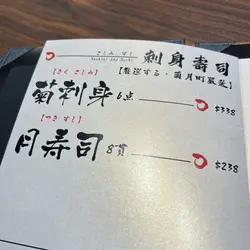 さしみ、すし
Sashimi and Sushi
刺身寿司
【きく さしみ】
【厳選する・菊月町最是】
菊刺身 6点 $338
【つき すし】
月寿司 8貫 $238